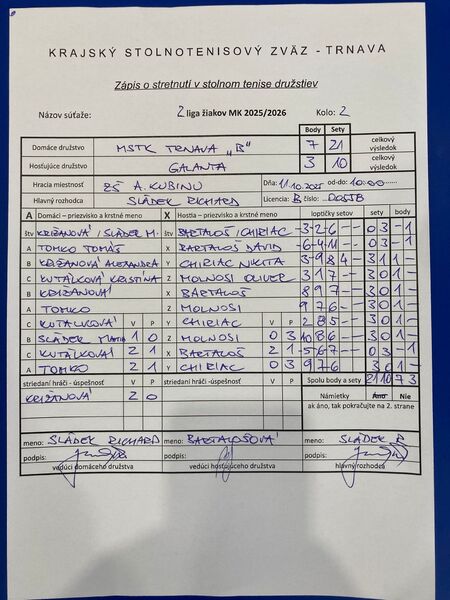 KRAJSKÝ STOLNOTENISOVÝ ZVÄZ - TRNAVA
Zápis o stretnutí v stolnom tenise družstiev
Názov súťaže: 2 liga žiakov MK 2025/2026 Kolo: 2
Body Sety
Domáce družstvo MSTK TRNAVA „B" 7 21 celkový výsledok
Hosťujúce družstvo GALANTA 3 10 celkový výsledok
Hracia miestnosť ZŠ A. KUBINU Dňa: 11.10.2025 od-do: 10:00
Hlavný rozhodca SLÁDEK RICHARD Licencia: B číslo:
A Domáci - priezvisko a krstné meno X Hostia – priezvisko a krstné meno loptičky setov sety body
štv KRIŽANOVÁ / SLÁDEK M. štv BARTALOŠ / CHIRIAC -3 -2 -6 - - 0 3 - 1
A TOMKO TOMÁŠ X BARTALOŠ DAVID -6 -4 -11 - - 0 3 - 1
B KRIŽANOVÁ ALEXANDRA Y CHIRIAC NIKITA -3 9 8 4 - 3 1 1 -
C KUTÁLKOVÁ KRISTÍNA Z MOLNOSI OLIVER 3 1 7 - - 3 0 1 -
B KRIŽANOVÁ X BARTALOŠ 8 9 7 - - 3 0 1 -
A TOMKO Z MOLNOSI 9 7 6 - - 3 0 1 -
C KUTALKOVÁ V P Y CHIRIAC V P 2 8 5 - - 3 0 1 -
B SLÁDEK 1 0 Z MOLNOSI 0 3 10 8 6 - - 3 0 1 -
C KUTALKOVÁ 2 1 X BARTALOŠ 2 1 -5 -6 -7 - - 0 3 - 1
A TOMKO 2 1 Y CHIRIAC 0 3 9 7 6 - - 3 0 1 -
striedaní hráči - úspešnosť V P striedaní hráči - úspešnosť V P Spolu body a sety 21 10 7 3
KRIŽANOVÁ 2 0 Námietky Áno Nie
ak áno, tak pokračujte na 2. strane
meno: SLÁDEK RICHARD meno: BARTALOŠOVÁ meno: SLÁDEK R
podpis: podpis: podpis:
vedúci domáceho družstva vedúci hosťujúceho družstva hlavný rozhodca